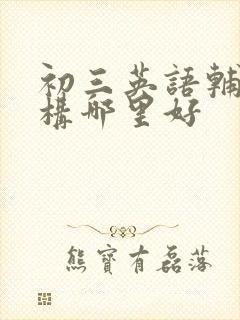 初三英語輔
構哪里好
熊寶有磊落